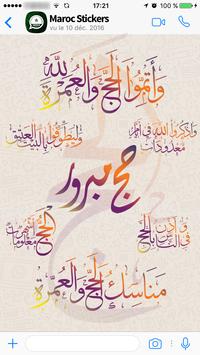 17:21
Maroc Stickers
vu le 10 déc. 2016
وأتموا الحج والعمرة لله
واذكروا الله في أيام معدودات
وليطوفوا بالبيت العتيق
حج مبرور
وأذن في الناس بالحج
الحج أشهر معلومات
مناسك الحج والعمرة